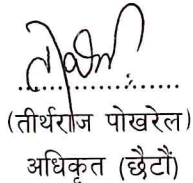 (तीर्थराज पोखरेल)
अधिकृत (छैटौं)